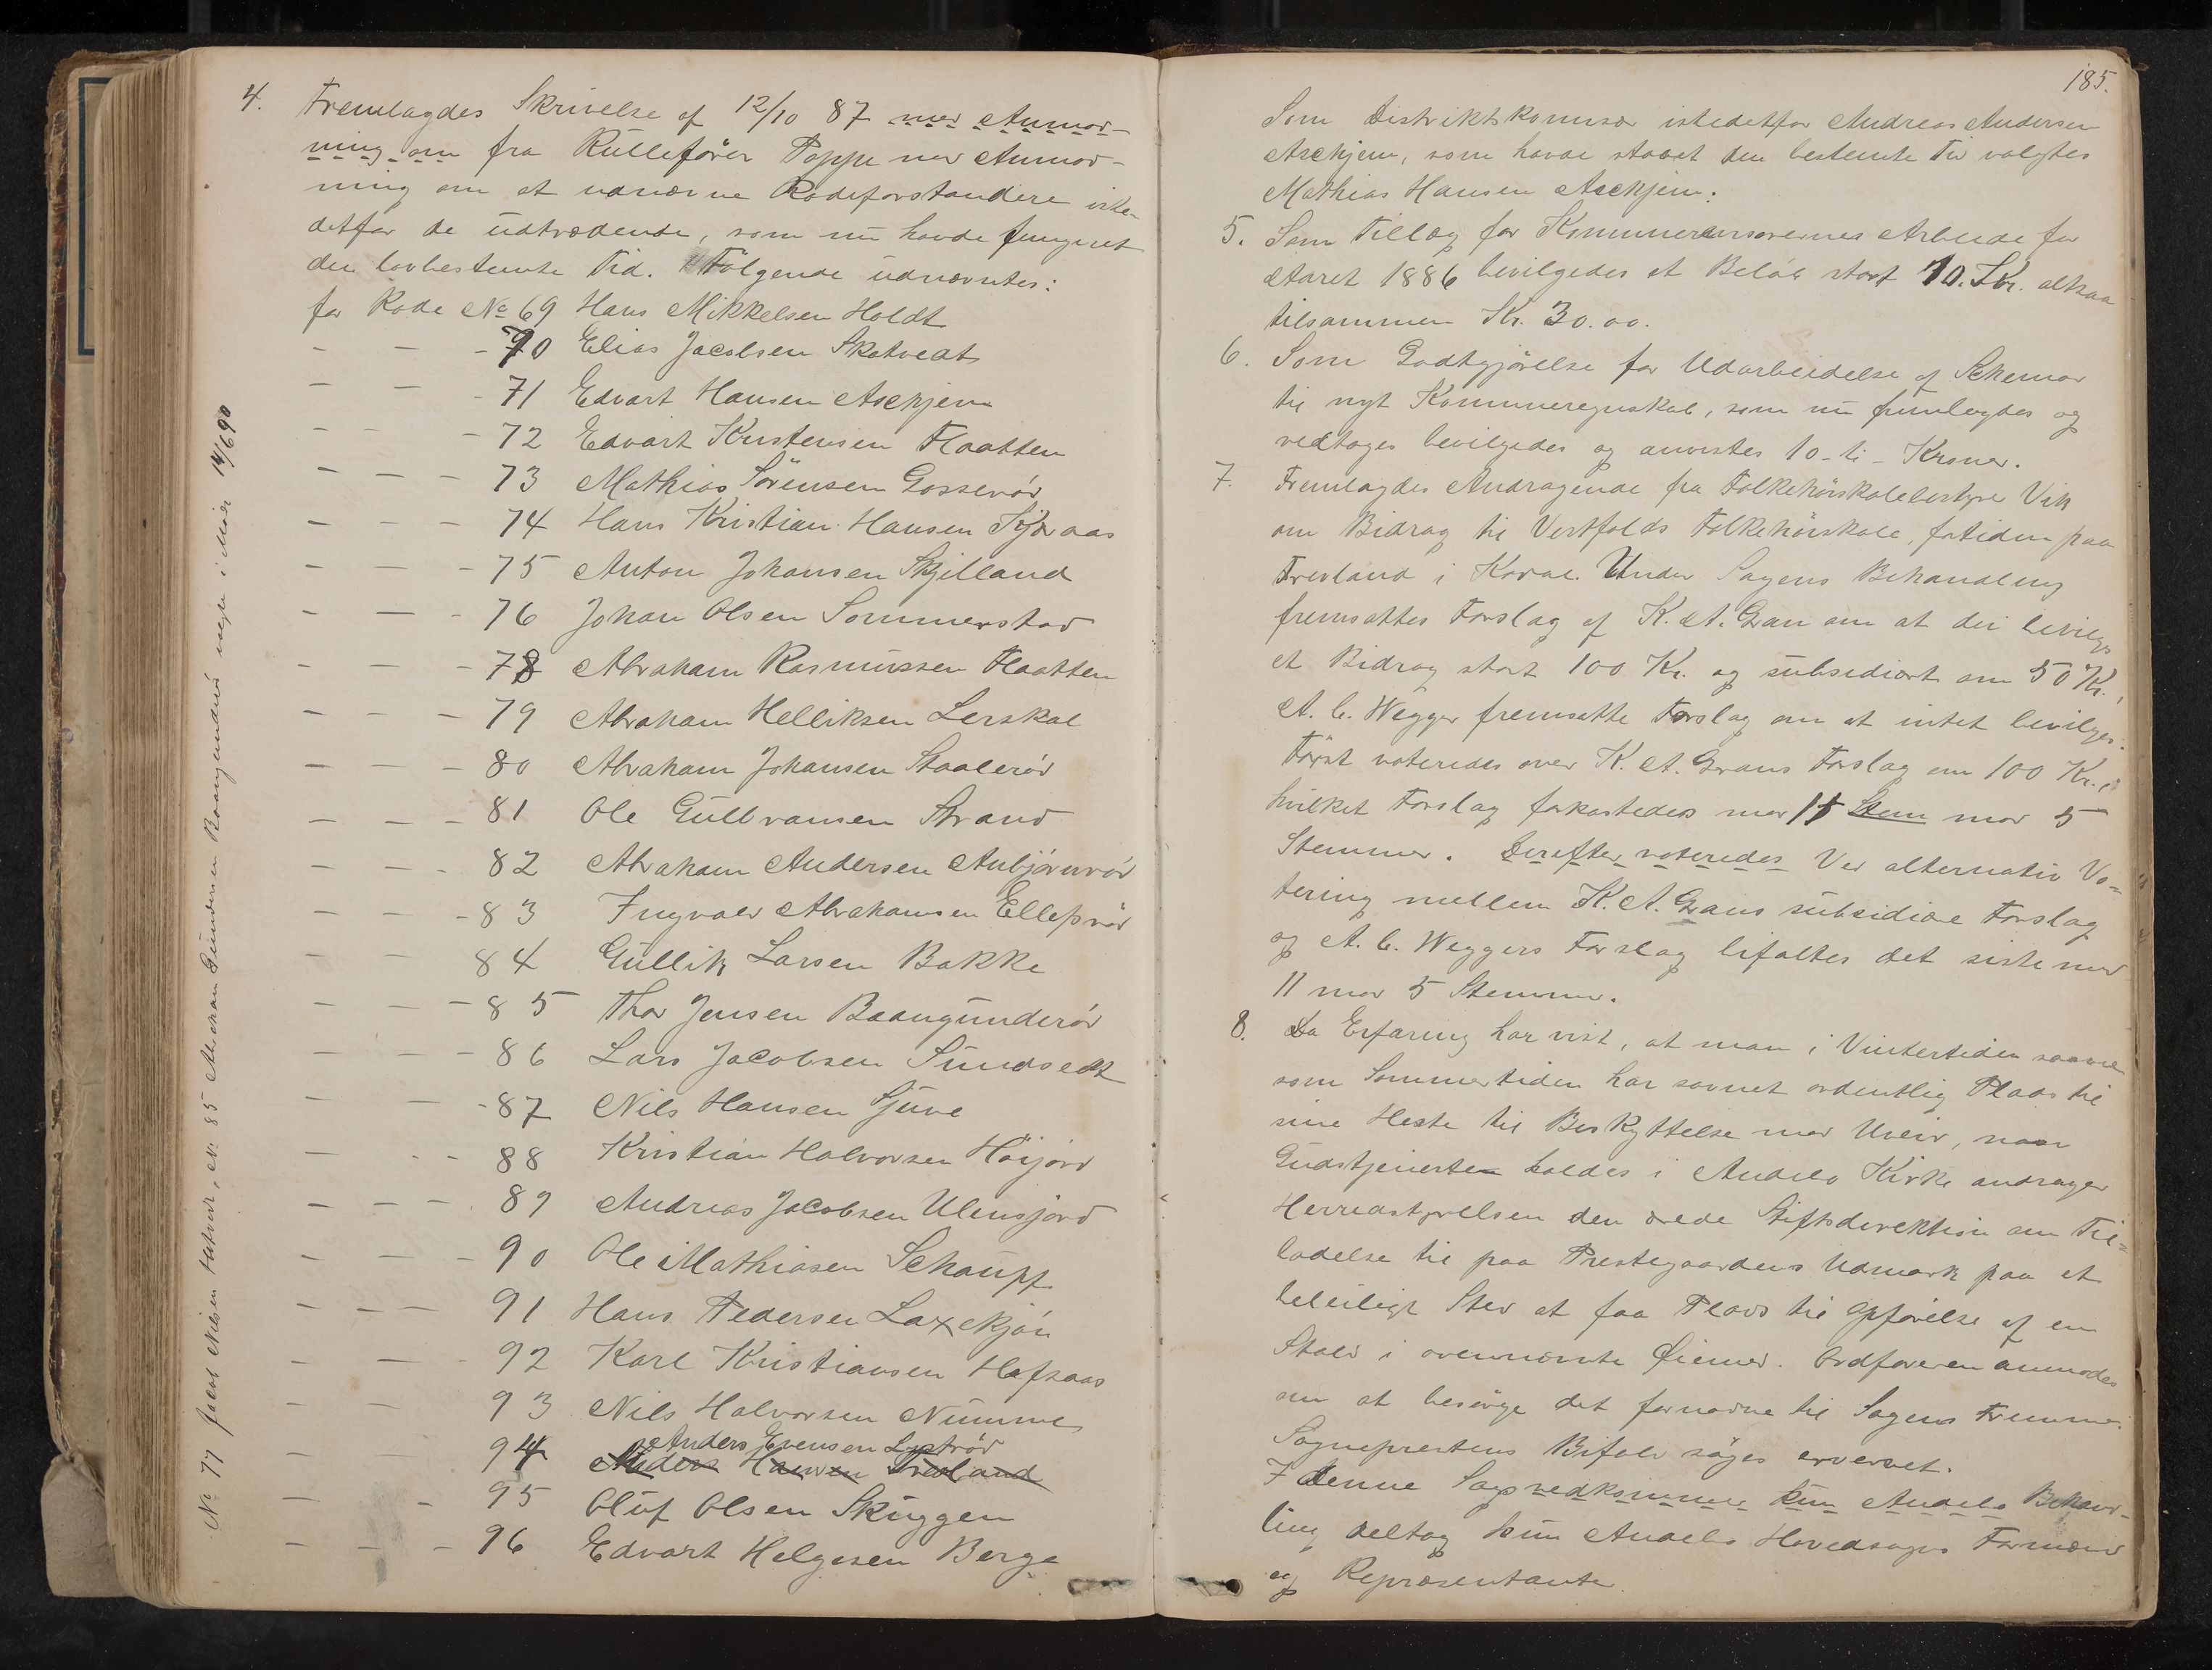 4. Fremlagdes Skrivelse af 12/10 87 med Anmod-
ning om fra Rullefører Poppe med Anmod-
ning om at udnævne Rodeforstandere iste-
detfor de udtrædende, som nu havde fungeret
den lovbestemte Tid. Følgende udnævntes:
for Rode No 69 Hans Mikkelsen Holdt
- - - 70 Elias Jacobsen Skatvedt
- - - 71 Edvart Hansen Askjem
- - - 72 Edvart Kristensen Flaatten
- - - 73 Mathias Sørensen Gosserød
- - - 74 Hans Kristian Hansen Kjæraas
- - - 75 Anton Johansen Skjelland
- - - 76 Johan Olsen Sommerstad
- - - 78 Abraham Rasmussen Flaatten
- - - 79 Abraham Helliksen Lerskal
- - - 80 Abraham Johansen Staalerød
- - - 81 Ole Gulbransen Strand
- - - 82 Abraham Andersen Anbjørnrød
- - - 83 Ingvald Abrahamsen Ellefsrød
- - - 84 Gullik Larsen Bakke
- - - 85 Thor Jensen Baangunderød
- - - 86 Lars Jacobsen Sundsedt
- - - 87 Nils Hansen Sjuve
- - - 88 Kristian Halvorsen Høijord
- - - 89 Andreas Jacobsen Ulensjord
- - - 90 Ole Mathiasen Schaupp
- - - 91 Hans Pedersen Laxekjøn
- - - 92 Karl Kristiansen Hafsaas
- - - 93 Nils Halvorsen Numme
Anders Evensen Lystrød
94 Anders Hansen Fredland
- - 95 Oluf Olsen Skuggen
- - - 96 Edvart Helgesen Berge
No 77 Jacob Nilsen No 85 Abraham Gundersen Baangunderød valgt i Møde 14/6 90
185.
Som Distriktskommisær istedetfor Andreas Andersen
Askjem, som havde staaet den bestemte Tid valgtes
Mathias Hansen Askjem.
5. Som Tillæg for Kommunerevisorernes Arbeide for
Aaret 1886 bevilgedes et Beløb stort 10. Kr. altsaa
tilsammen Kr. 30.00.
6. Som Godtgjørelse for Udarbeidelse af Schemar
til nyt Kommuneregnskab, som nu fremlagdes og
vedtoges bevilgedes og anvistes 10 - ti - Kroner.
7. Fremlagdes Andragende fra Folkehøiskolebestyrer Vik
om Bidrag til Vestfolds Folkehøiskole, fortiden paa
Fredland i Kodal. Under Sagens Behandling
fremsattes Forslag af K. A. Gran om at der bevilges
et Bidrag stort 100 Kr. og subsidiært om 50 Kr.,
A. C. Wegger fremsatte Forslag om at intet bevilges.
Først voteredes over K. A. Grans Forslag om 100 Kr.,
hvilket Forslag forkastedes med 11 Stem mod 5
Stemmer. Derefter voteredes Ved alternativ Vo-
tering mellem K. A. Grans subsidiære Forslag
og A. C. Weggers Forslag bifaltes det siste med
11 mod 5 Stemmer.
8. Da Erfaring har vist, at man i Vintertiden saavel
som Sommertiden har savnet ordentlig Plads til
sine Heste til Beskyttelse mod Uveir, naar
Gudstjenesten holdes i Andebo Kirke andrager
Herredstyrelsen den ærede Stiftsdirektion om Til-
ladelse til paa Prestegaardens Udmark paa et
beleiligt Sted at faa Plads til Opførelse af en
Stald i ovennævnte Øiemed. Ordføreren anmodes
om at besørge det fornødne til Sagens Fremme.
Sogneprestens Bifald søges erværvet.
I denne Sags vedkommer kun Andebo Behand-
ling deltog kun Andebo Hovedsogns Formænd
og Repræsentanter.